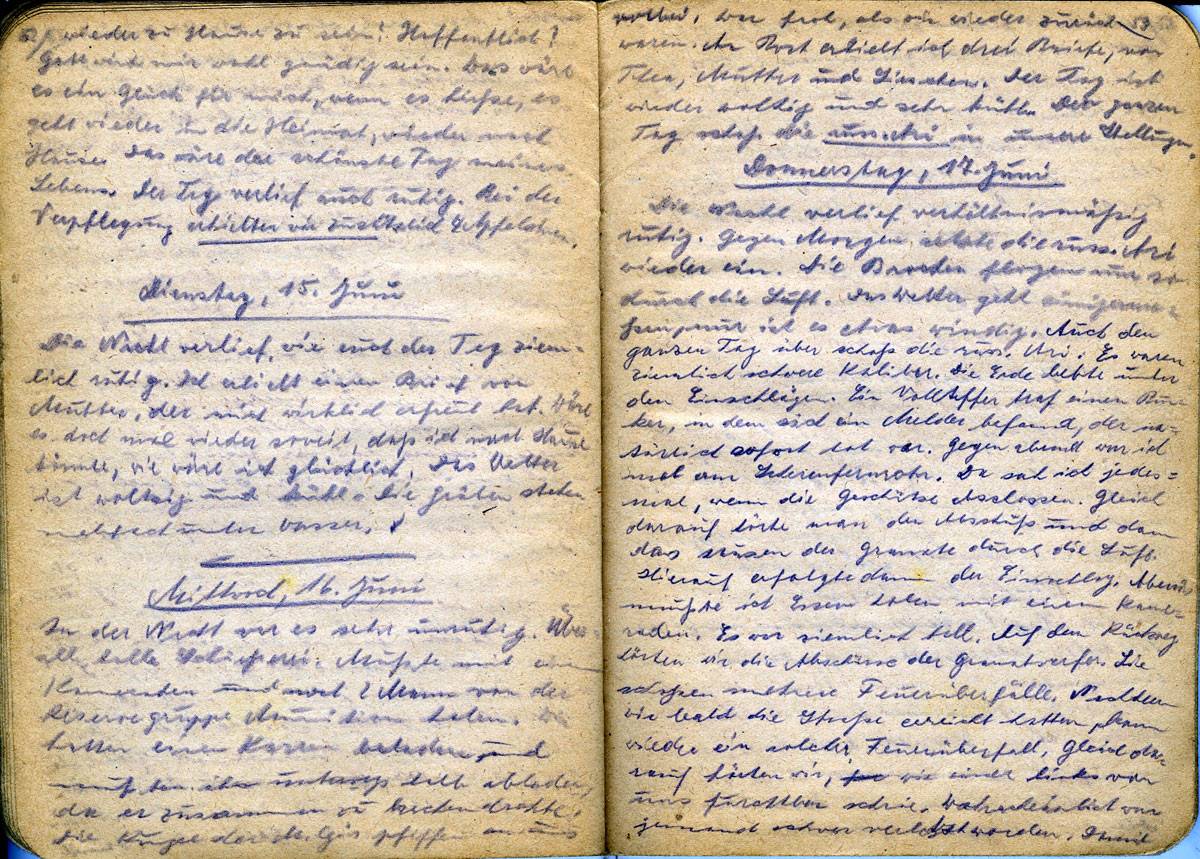 wieder zu Hause zu sein! Hoffentlich?
Gott wird mir wohl gnädig sein. Das wäre
es ein Glück für mich, wenn es hieße, es
geht wieder in die Heimat, wieder nach
Hause. Das wäre der schönste Tag meines
Lebens. Der Tag verlief auch ruhig. Bei der
Verpflegung erhielten wir zusätzlich
Dienstag, 15. Juni
Die Nacht verlief, wie auch der Tag ziem-
lich ruhig. Ich erhielt einen Brief von
Mutter, der mich wirklich erfreut hat. Wäre
es doch mal wieder soweit, daß ich nach Hause
könnte, wie wäre ich glücklich. Das Wetter
ist wolkig und kühl. Die Gräben stehen
unter Wasser.
Mittwoch, 16. Juni
In der Nacht war es sehr unruhig. Über-
all tolle Schießerei. Mußte mit einem
Kameraden und noch 2 Mann von der
Reservegruppe Munition holen. Wir
hatten einen Karren beladen und
mußten ihn unterwegs halb abladen,
da er zusammen zu brechen drohte.
Die Kugeln der M.Gs pfiffen an uns
vorbei. War froh, als wir wieder zurück
waren. An Post erhielt ich drei Briefe, von
Thea, Mutter und Lieschen. Der Tag ist
wieder wolkig und sehr kühl. Den ganzen
Tag schoß die russ. Ari in unsere Stellungen.
Donnerstag, 17. Juni
Die Nacht verlief verhältnismäßig
ruhig. Gegen Morgen setzte die russ. Ari
wieder ein. Die Brocken flogen nur so
durch die Luft. Das Wetter geht einigerma-
ßen, nur ist es etwas windig. Auch den
ganzen Tag über schoß die russ. Ari. Es waren
ziemlich schwere Kaliber. Die Erde bebte unter
den Einschlägen. Ein Volltreffer traf einen Bun-
ker, in dem sich ein Melder befand, der na-
türlich sofort tot war. Gegen abend war ich
mal am Scherenfernrohr. Da sah ich jedes-
mal, wenn die Geschütze abschossen. Gleich
darauf hörte man den Abschuß und dann
das sausen der Granate durch die Luft.
Hierauf erfolgte dann der Einschlag. Abends
mußte ich Essen holen mit einem Kame-
raden. Es war ziemlich hell. Auf dem Rückweg
hörten wir die Abschüsse der Granatwerfer. Sie
schoßen mehrere Feuerüberfälle. Nachdem
wir bald die Straße erreicht hatten, kam
wieder ein solcher Feuerüberfall. Gleich da-
rauf hörten wir, wie einer links von
uns furchtbar schrie. Wahrscheinlich war
jemand schwer verletzt worden. Damit